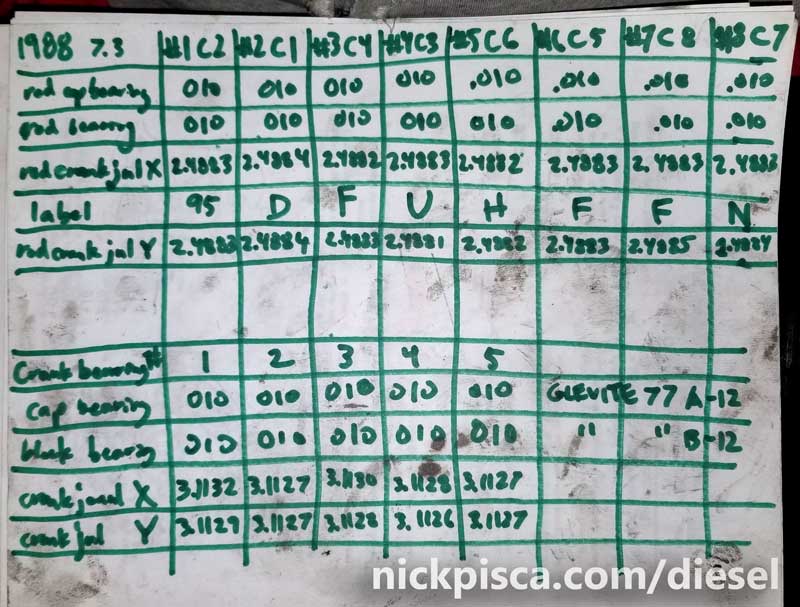 1988 7.3 #1C2 #2C1 #3C4 #4C3 #5C6 #6C5 #7C8 #8C7
rod cap bearing 010 010 010 010 .010 .010 .010 .010
rod bearing 010 010 010 010 010 .010 .010 .010
rod crank jnl X 2.4883 2.4884 2.4882 2.4883 2.4882 2.4883 2.4883 2.4883
label 95 D F U H F F N
rod crank jnl Y 2.4883 2.4884 2.4883 2.4881 2.4882 2.4883 2.4885 2.4884
Crank bearing # 1 2 3 4 5
cap bearing 010 010 010 010 010 GLEVITE 77 A-12
block bearing 010 010 010 010 010 " " B-12
crank jornal X 3.1132 3.1127 3.1130 3.1128 3.1127
crank jnl Y 3.1129 3.1127 3.1128 3.1126 3.1127
nickpisca.com/diesel